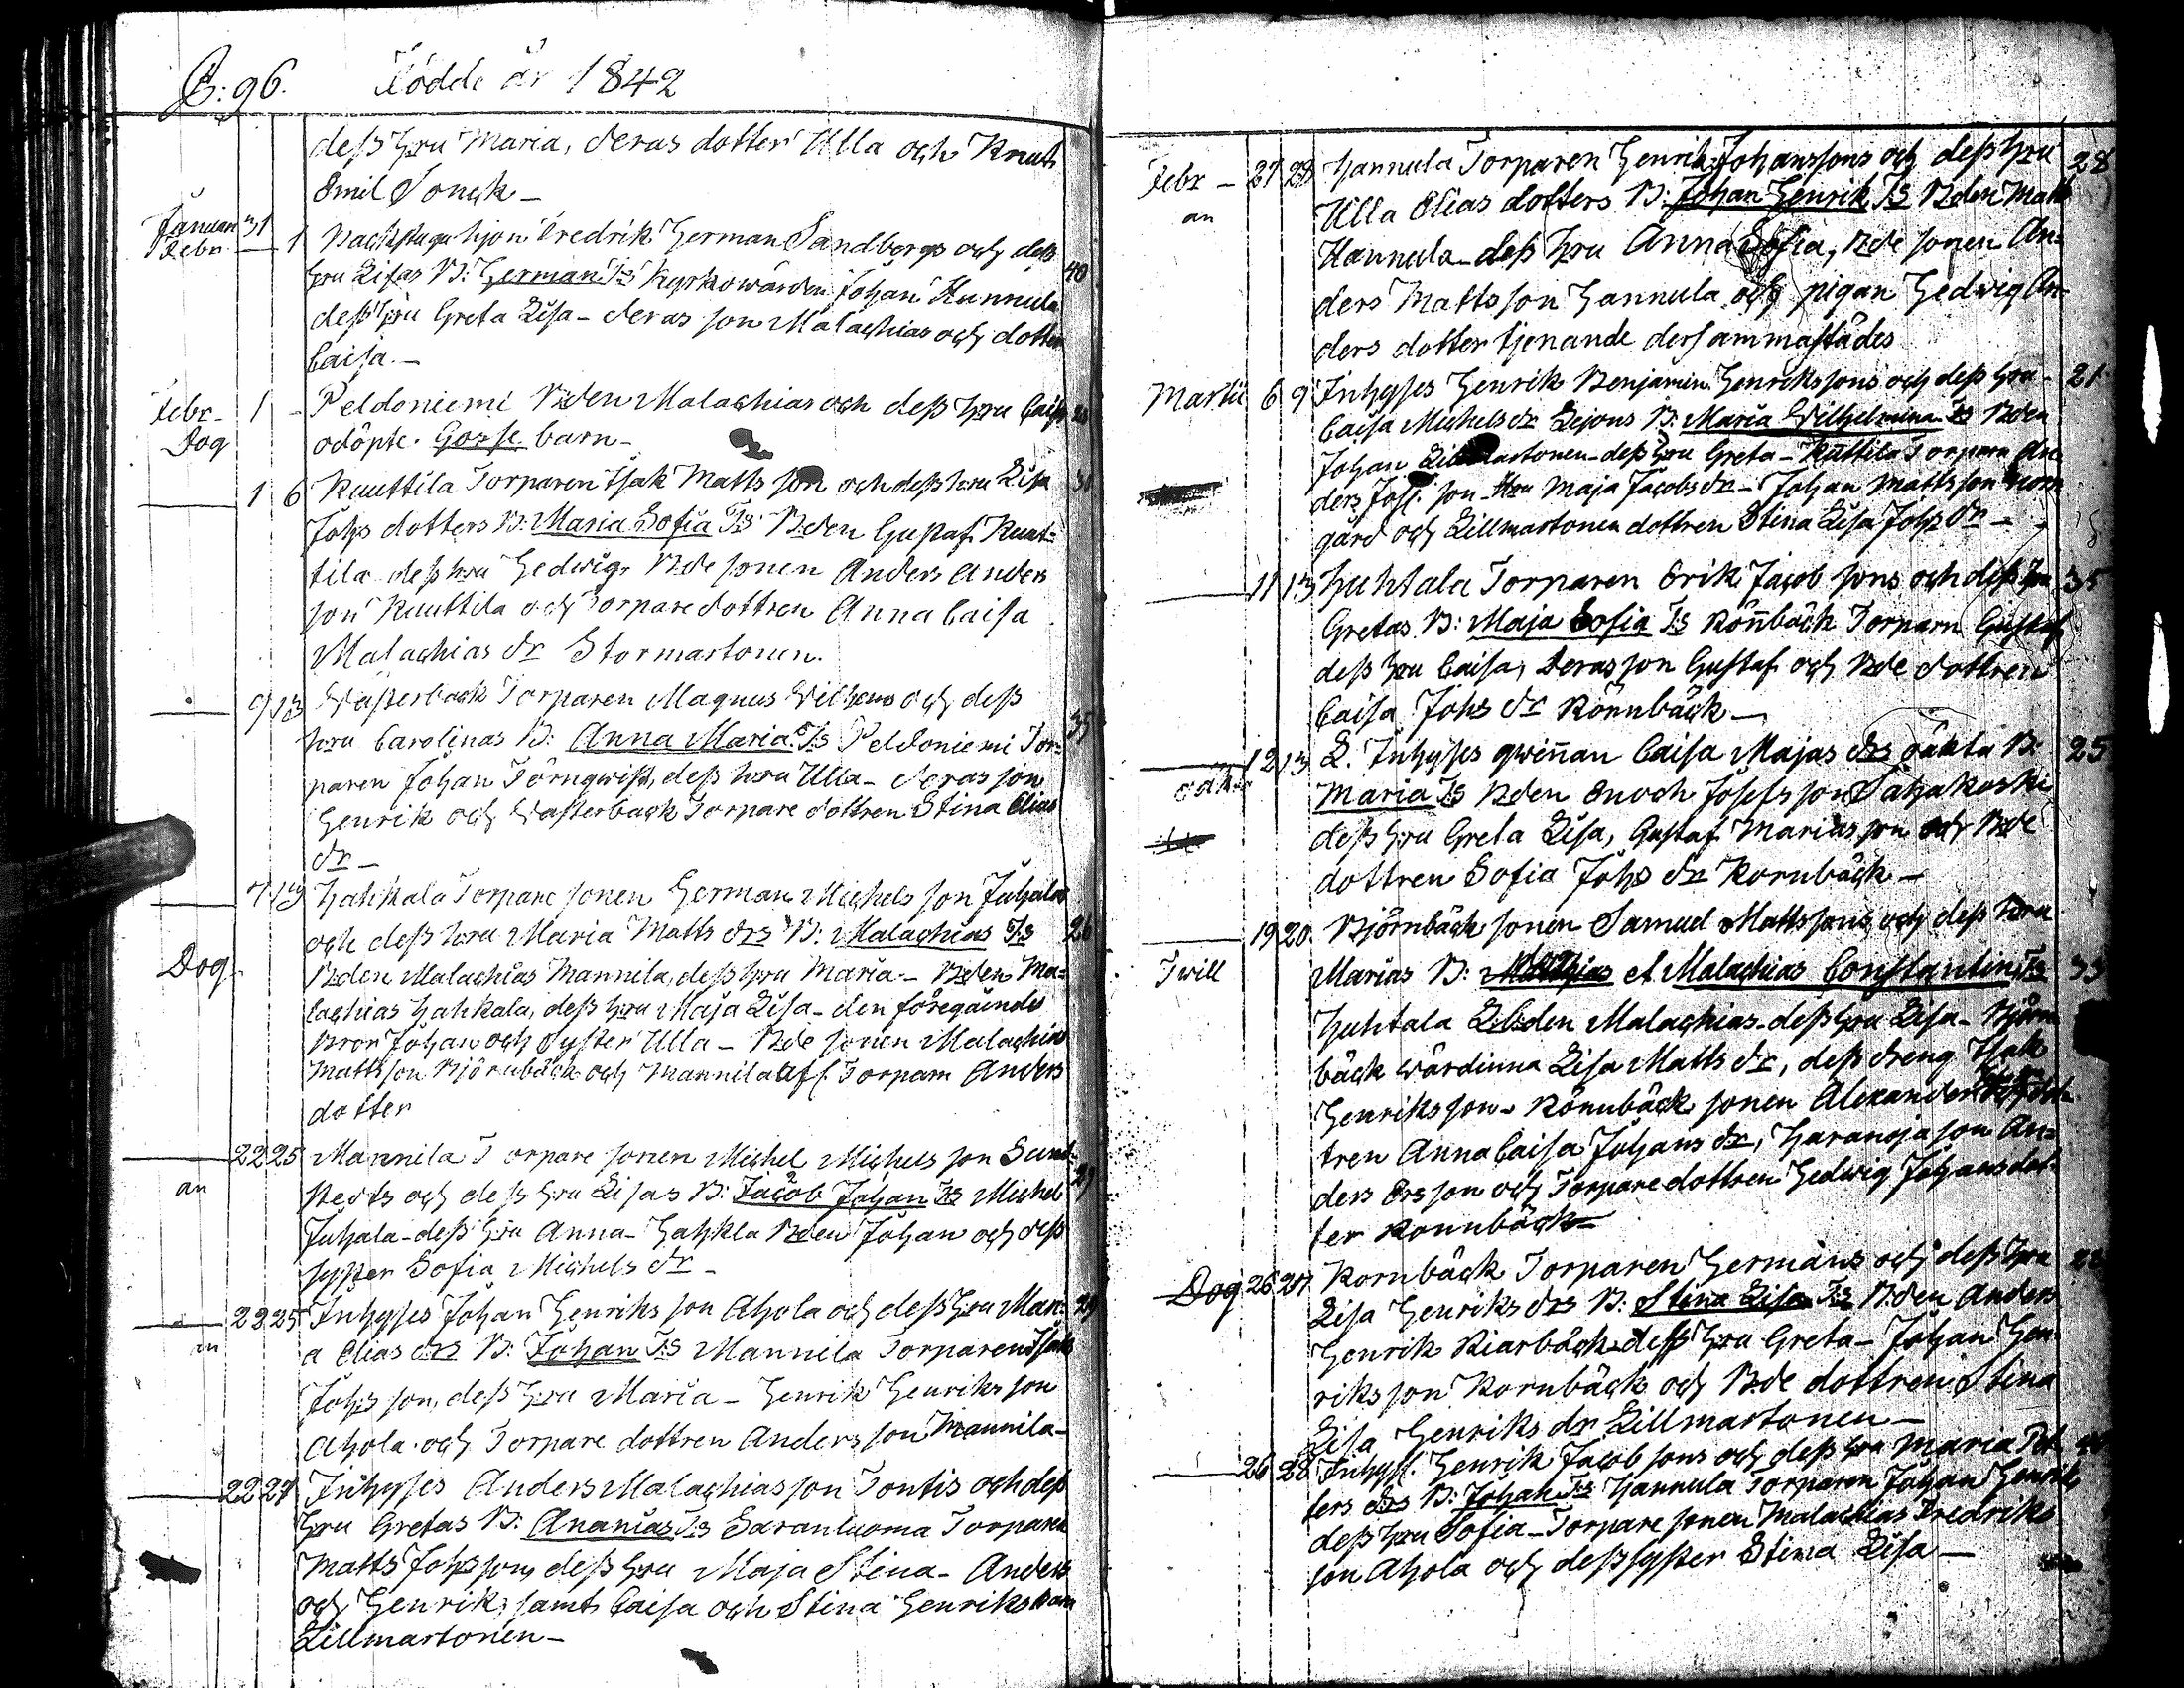 B: 96. Födde år 1842
dess hru Maria, deras dotter Ulla och Knut
Emil Tonck –
Januari 31
Febr. 1 Backstuguhjon Fredrik Herman Sandbergs och dess
hru Lisas B: Herman Ts Kyrkowärden Johan Hannula 40
dess hru Greta Lisa – deras son Malachias och dotter
Caisa. –
Febr – 1 – Peldoniemi Bden Malachias och dess hru Caisa
Dog odöpte. Gosse barn –
1 6 Kuuttila Torparen Isak Matts son och dess hru Lisa
Johs dotters B: Maria Sofia Ts Bden Gustaf Kuut=
tila dess hru Hedwig. Bde sonen Anders Anders
son Kuuttila och Torpare dottren Anna Caisa
Malachias dr Stormartonen.
9 13 Wästerback Torparen Magnus Wilhems och dess
hru Carolinas B: Anna Maria Ts Peldoniemi Tor= 35
paren Johan Törnqwist, dess hru Ulla – deras son
Henrik och Wästerback Torpare dottren Stina Elias
dr –
7 13 Hahkala Torpare sonen Herman Michels son Juhala
och dess hru Maria Matts drs B: Malachias Ts 26
Dog Bden Malachias Mannila, dess hru Maria. – Bden Ma=
lachias Hahkala, dess hru Maja Lisa – den föregående
Bror Johan och Syster Ulla – Bde sonen Malachias
Matts son Björnbäck och Mannila afl. Torparn Anders
dotter
22 25 Mannila Torpare sonen Michel Michels son Sund
an stedts och dess hru Lisas B: Jacob Johan Ts Michel 29
Juhala – dess hru Anna – Hahkla Bden Johan och dess
syster Sofia Michels dr –
22 25 Inhyses Johan Henriks son Ahola och dess hru Mari= 29
an a Elias drs B: Johan Ts Mannila Torparen Isak
Johs son, dess hru Maria – Henrik Henriks son
Ahola och Torpare dottren Anders son Mannila –
22 27 Inhyses Anders Malachias son Tontis och dess
hru Gretas B: Ananias Ts Saranluoma Torparen
Matts Johs son, dess hru Maja Stina – Anders
och Henrik, samt Caisa och Stina Henriks barn
Lillmartonen –
Febr – 27 28 Hannula Torparen Henrik Johanssons och dess hru 28
an Ulla Elias dotters B: Johan Henrik Ts Bden Matts
Hannula – dess hru Anna Sofia, Bde sonen An=
ders Mattsson Hannula och pigan Hedwig An=
ders dotter tjenande dersammastädes
Martii 6 9 Inhyses Henrik Benjamin Henrikssons och dess hru 21
Caisa Michels dr Lejons B: Maria Wilhelmina Ts Bden
Johan Lillmartonen – dess hru Greta – Kuttila Torparn An
ders Johs. son – hru Maja Jacobs dr – Johan Matts son Norr
gård och Lillmartonen dottren Stina Lisa Johs dr –
11 13 Huhtala Torparen Erik Jacob sons och dess hru 35
Gretas B: Maja Sofia Ts Rönnbäck Torparn Gustaf
dess hru Caisa, deras son Gustaf och Bde dottren
Caisa Johs dr Rönnbäck –
12 13 L. Inhyses qwinnan Caisa Majas drs oäkta B: 25
oäkta Maria Ts Bden Enoch Josefs son Sahakoski
dess hru Greta Lisa, Gustaf Marias son och Bde
dottren Sofia Johs dr Kornbäck –
19 20. Björnbäck sonen Samuel Matts sons och dess hru
Twill Marias B: Matthias et Malachias Constantin Ts 33
Huhtala Bden Malachias – dess hru Lisa – Björn
bäck wärdinna Lisa Matts dr, dess dreng Isak
Henriks son – Rönnbäck sonen Alexander
tren Anna Caisa Johans dr, Haranoja son An=
ders Ers son och Torpare dottren Hedwig Johans dot=
ter Rönnbäck –
Dog 26 27 Kornbäck Torparen Hermans och dess hru 28
Lisa Henriks drs B: Stina Lisa Ts Bden Anders
Henrik Kiarbäck – dess hru Greta – Johan Hen
riks son Kornbäck och Bde dottren Stina
Lisa Henriks dr Lillmartonen –
26 28 Inhys. Henrik Jacob sons och dess hru Maria Pet
ters drs B: Johan Ts Hannula Torparen Johan Henrik
dess hru Sofia – Torpare sonen Malachias Fredriks
son Ahola och dess syster Stina Lisa –